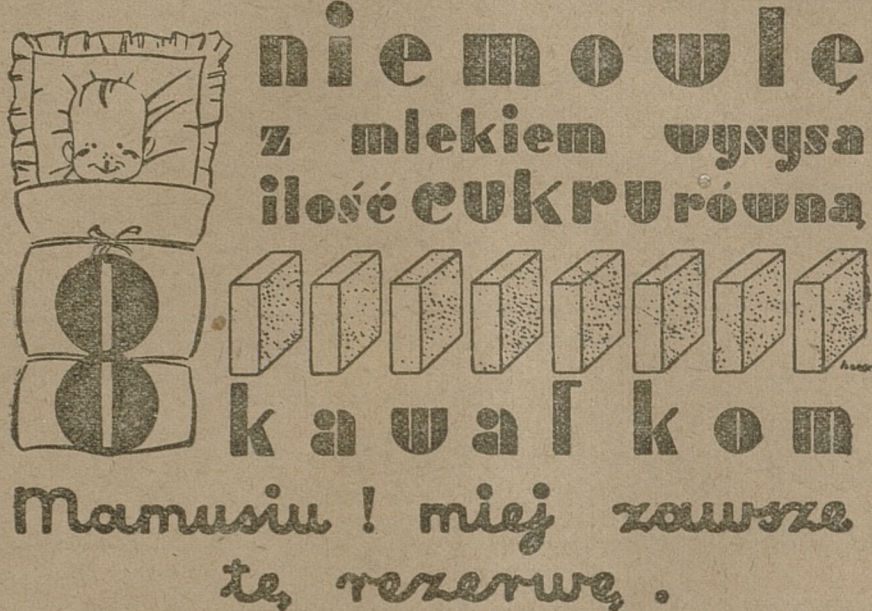 niemowlę
z mlekiem wysysa
ilość cukru równą
8
kawałkom
Mamusiu! miej zawsze
tę rezerwę.